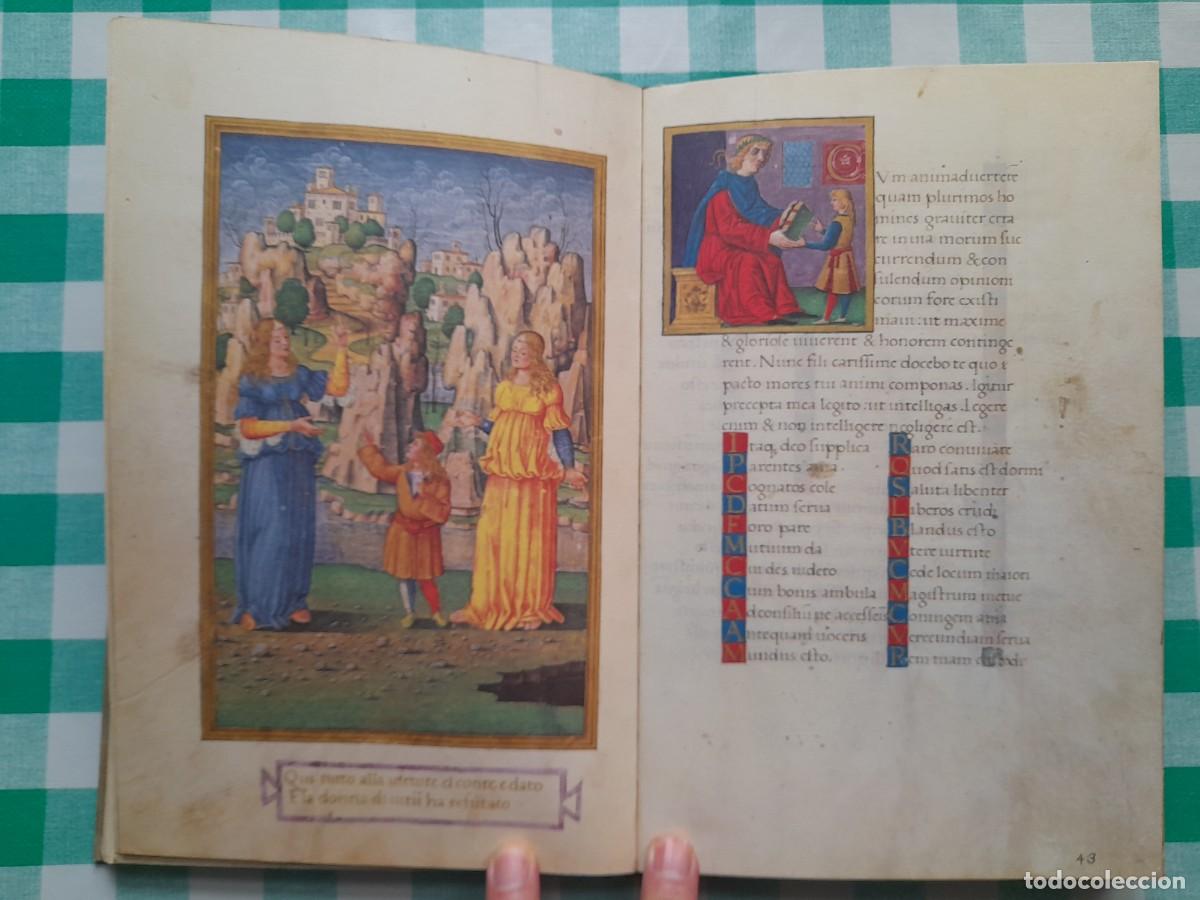 Qui tutto alla uirtute el conte e dato
E la donna di uitii ha refutato
Vm animaduertere
quam plurimos ho
mines grauiter erra
re in uia morum suc
currendum & con
sulendum opinioni
eorum fore existi
maui: ut maxime
& gloriose uiuerent & honorem continge
rent. Nunc fili carissime docebo te quo
pacto mores tui animi componas. Igitur
precepta mea legito: ut intelligas. Legere
enim & non intelligere negligere est.
Itaq, deo supplica
Parentes ama
Cognatos cole
Datum serua
Foro pare
Mutuum da
Cui des uideto
Cum bonis ambula
Ad consiliũ ne accesseris
Antequam uoceris
Mundus esto.
Raro conuiuare
Quod satis est dormi
Saluta libenter
Liberos erudi
Blandus esto
Vtere uirtute
Cede locum maiori
Magistrum metue
Coniugem ama
Verecundiam serua
Rem tuam
43
todocoleccion